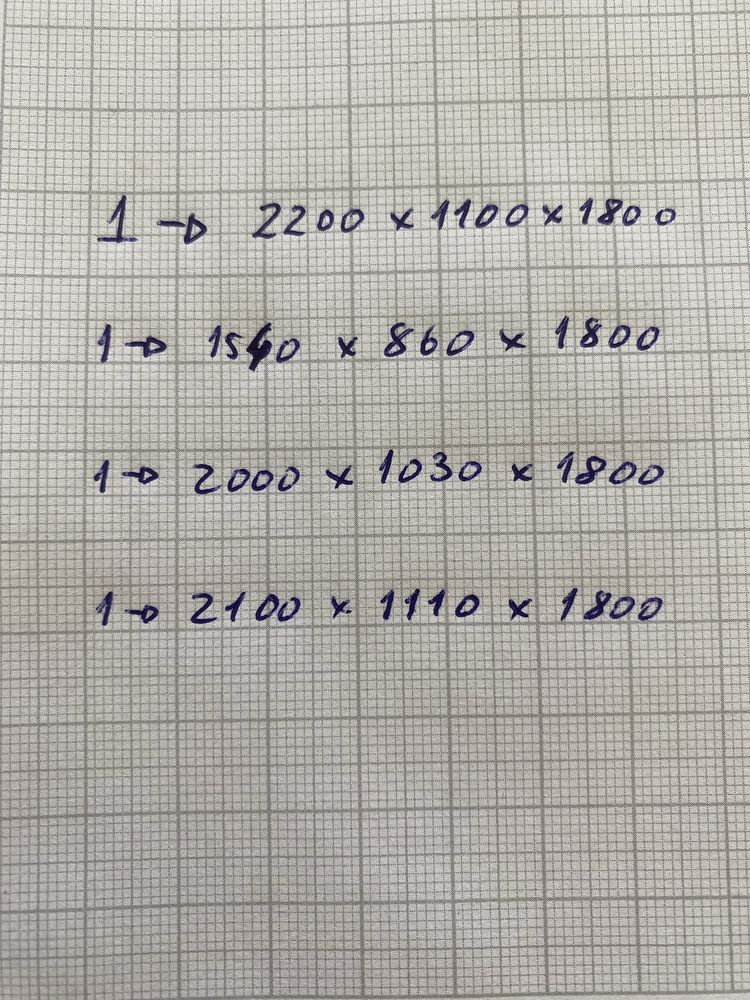 1 → 2200 x 1100 x 1800
1 → 1540 x 860 x 1800
1 → 2000 x 1030 x 1800
1 → 2100 x 1110 x 1800